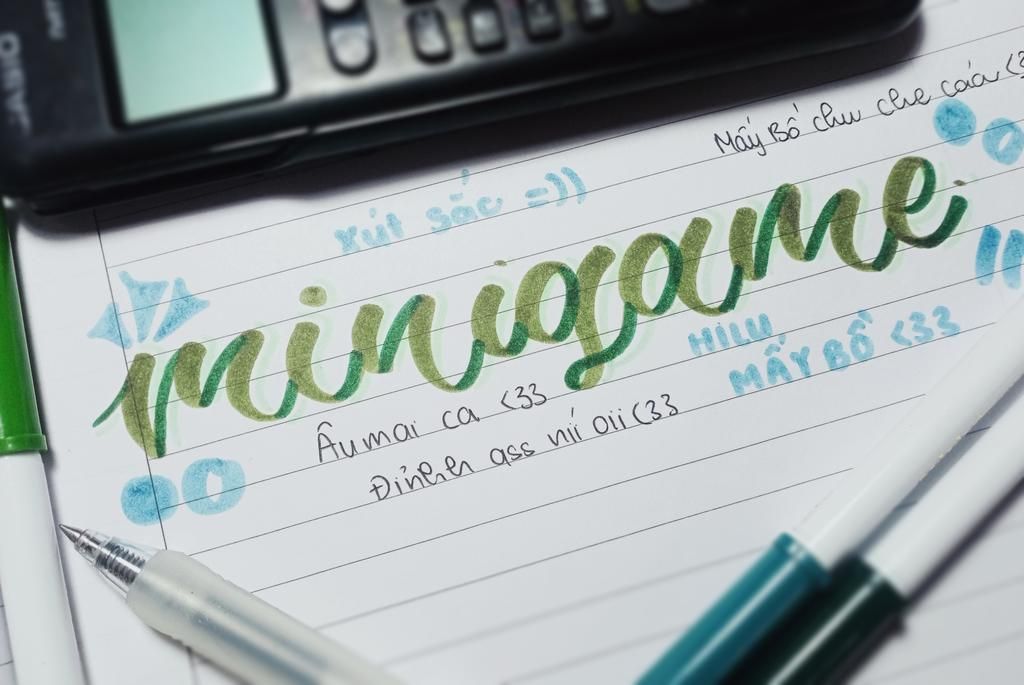 Mấy Bồ chu che cáu <3
xút sắc =))
minigame
HILU
MẤY BỒ <33
Âumai ca <33
Đỉnhh qss níi oii <33